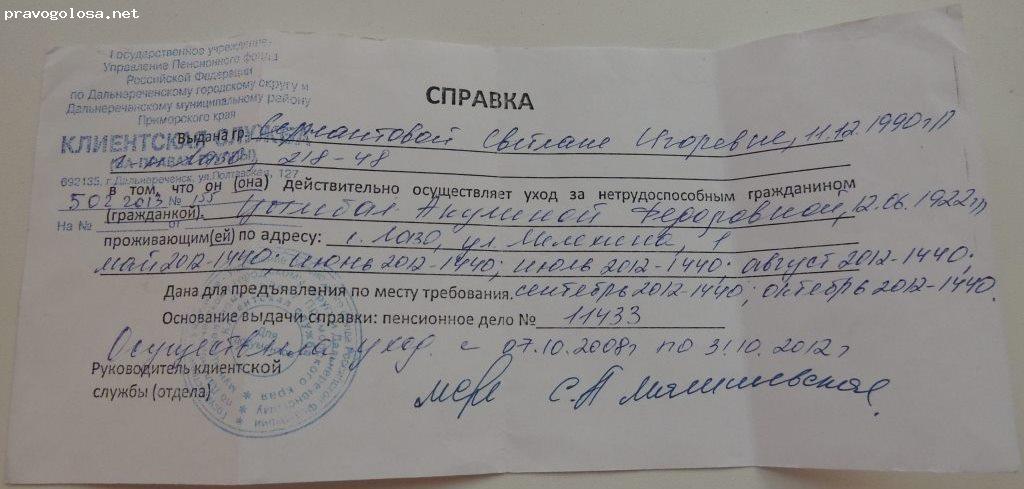 pravogolosa.net
Государственное учреждение
Управление Пенсионного фонда
Российской Федерации
по Дальнереченскому городскому округу и
Дальнереченскому муниципальному району
Приморского края
КЛИЕНТСКАЯ СЛУЖБА
692135, г. Дальнереченск, ул. Полтавская, 127
5 02 2013 № 155
На № от
СПРАВКА
Выдана гр. Светлане Игоревне, 11.12.1990г/р
218-48
в том, что он (она) действительно осуществляет уход за нетрудоспособным гражданином
(гражданкой). Цымбал Акулиной Федоровной, 12.06.1922г/р
проживающим(ей) по адресу: с. Лазо, ул. 1
май 2012-1440; июнь 2012-1440; июль 2012-1440; август 2012-1440;
Дана для предъявления по месту требования. сентябрь 2012-1440; октябрь 2012-1440.
Основание выдачи справки: пенсионное дело № 11433
Осуществляла уход с 07.10.2008г по 31.10.2012г
Руководитель клиентской
службы (отдела) С.П.